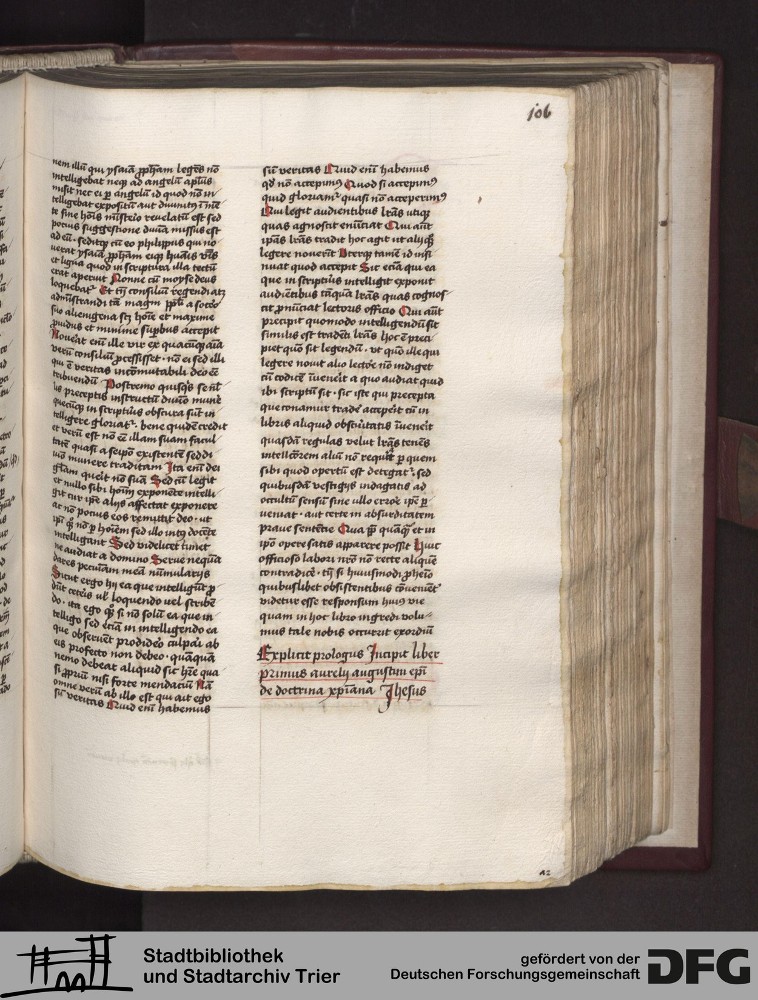 106
nem illū qui ysaiā ꝓpħam legēs nō
intelligebat neqꝫ ad angelū apl̄us
misit nec ei ꝑ angelū id quod nō in
telligebat expositū aut diuinitꝰ ī mē
te sine hoīs mīsterio reuelatū est sed
potius suggestione diuīa missus est
ad eū · seditqꝫ cū eo philippus qui no
uerat ysaiā ꝓpħam eiqꝫ hūanis v̄bis
et līgua quod in scriptura illa tectū
erat aperuit Nonne cū moyse deus
loquebatᷣ Et tn̄ consiliū regendi atqꝫ
admīstrandi tā magni ppl̄i a socero
suo alienigena scꝫ hoīe et maxime
ꝓuidus et minime suꝑbus accepit
Nouerat enī ille vir ex quacūqꝫ aīa
verū consiliū ꝓcessisset · nō ei sed illi
qui ē veritas incōmutabili deo eē
tribuendū Postremo quisqꝫ se nll̄
is preceptis instructū diuīo munē
quecūqꝫ in scripturis obscura sūt in
telligere gloriatᷣ · bene quidē credit
et verū est nō eē illam suam facul
tatē quasi a seipō existentē sed di
uīo munere traditam Ita enī dei
gl̄am querit nō suā Sed cū legit
et nullo sibi hoīm exponēte intelli
git cur ip̄e alijs affectat exponere
ac nō potius eos remittit deo · ut
ip̄i qꝫ nō ꝑ hoīem sed illo intꝰ docēte
intelligant Sed videlicet timet
ne audiat a domino Serue nequā
dares pecuniam meā nūmularijs
Sicut ergo hij ea que intelligūt ꝓ
dūt ceteris ul̓ loquendo uel scribē
do · ita ego qꝫ si nō solū ea que in
telligo sed etiā in intelligendo ea
que obseruēt prodidero culpari ab
eis profecto non debeo · quāquā
nemo debeat aliquid sic hr̄e qua
si ꝓpriū nisi forte mendaciū Nā
omne verū ab illo est qui ait ego
sū veritas Quid enī habemus
sū veritas Quid enī habemus
qd̓ nō accepimꝰ Quod si accepimꝰ
quid gloriamᷣ quasi nō acceperimꝰ
Qui legit audientibus lr̄as utiqꝫ
quas agnoscit enūciat Qui aūt
ip̄as lr̄as tradit hoc agit ut alij qꝫ
legere nouerīt Uterqꝫ tamē id insi
nuat quod accepit Sic etiā qui ea
que in scripturis intelligit exponit
audiētibus tāquā lr̄as quas cognos
cit ꝓnūciat lectoris officio Qui aūt
precipit quomodo intelligendū sit
similis est tradēti lr̄as hoc ē preci
piēti quō sit legendū · ut quō ille qui
legere nouit alio lectore nō indiget
cū codicē īuenerit a quo audiat quid
ibi scriptū sit · sic iste qui precepta
que conamur tradē acceperit cū in
libris aliquid obscuritatis īuenerit
quasdā regulas velut lr̄as tenēs
intellcōrem aliū nō requirit ꝑ quem
sibi quod opertū est detegatᷣ · sed
quibusdā vestigijs indagatis ad
occultū sensū sine ullo errore ip̄e ꝑ
ueniat · aut certe in absurditatem
praue sentētie Quā ꝑ quāqꝫ et in
ip̄o opere satis apparere possit Huic
officioso labori nr̄o nō recte aliquē
contradicē · tn̄ si huiusmodi ꝓhemio
quibuslibet obsistentibus cōueniēt
videtur esse responsum huiꝰ vie
quam in hoc libro ingredi volu-
mus tale nobis occurrit exordiū
Explicit prologus Incipit liber
primus aurelij augustini epī
de doctrina xpīana Jhesus
Stadtbibliothek
und Stadtarchiv Trier
gefördert von der
Deutschen Forschungsgemeinschaft
DFG